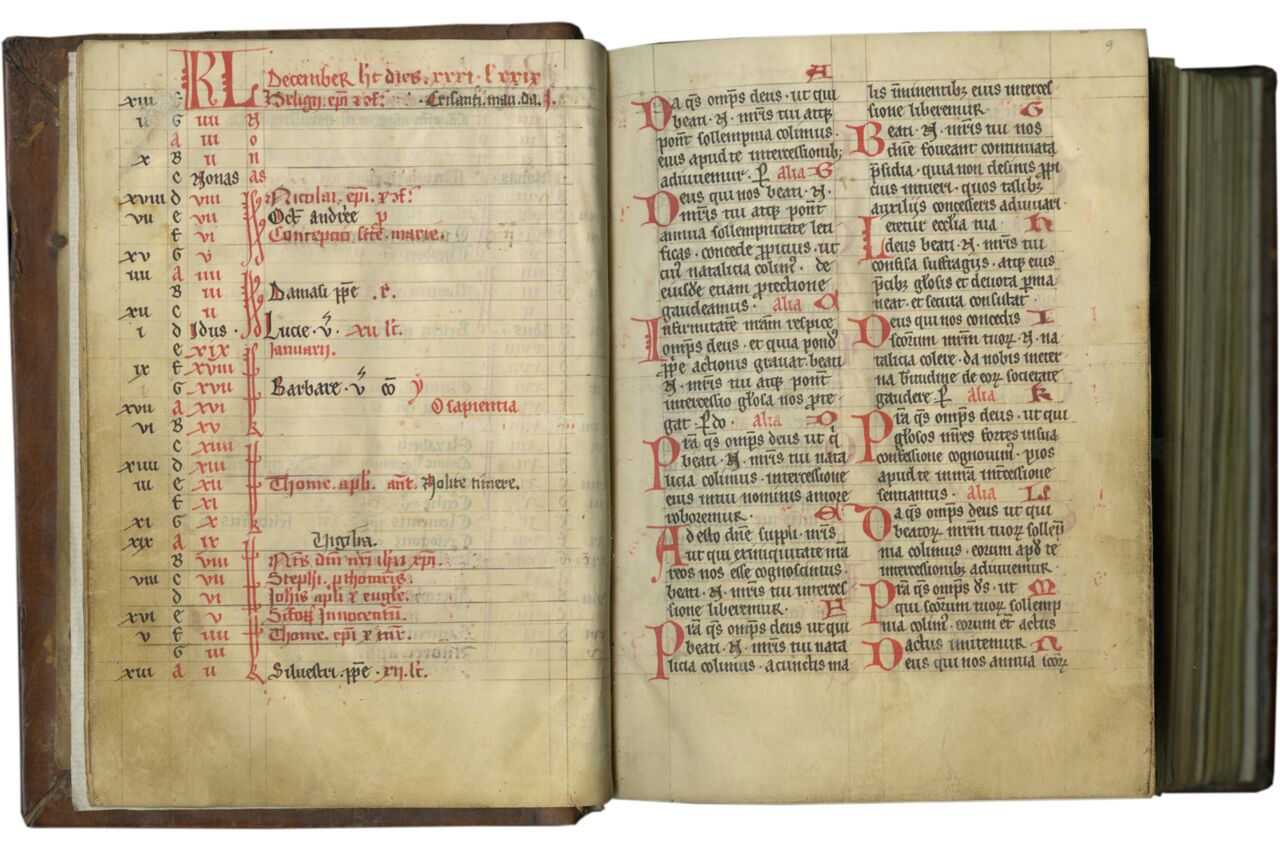 KL December hēt dies. xxxi. l xxix
xiii f Eeligii. epi
ii G iiii N
a iii o
x B ii n
c Nonas as
xviii d viii Id Nicolai. epi. et cf.
vii e vii Oct andree p
f vi Conceptio scē marie.
xv G v
iiii a iiii
B iii Damasi ppe .
xii c ii
i d Idus. Lucie. v. xii lc.
e xix Januarii.
ix f xviii
G xvii Barbare. v
xvii a xvi O sapientia
vi B xv
c xiiii
xiiii d xiii
iii e xii Thome. apli. ant. Nolite timere.
f xi
xi G x
xix a ix Vigilia.
B viii Nat. dni nri ihu xpi.
viii c vii Stephi. pthomris.
d vi Johis apli et eugle.
xvi e v Sctoꝝ Innocentū.
v f iiii Thome. epi et mr.
G iii
xiii a ii Silvestri. ppe. xii. lc.
9
A
Da qs omps deus. ut qui
beati. N. mris tui atqꝫ
pont sollempnia colimus.
eius apud te intercessionibꝫ
adiuuemur. P alia
Deus qui nos beati. N.
mris tui atqꝫ pont
annua sollempnitate leti
ficas. concede ꝓpicius. ut
cuiˀ natalicia colimˀ. de
eiusdē etiam ꝓtectione
gaudeamus. alia
Infirmitatē nram respice
omps deus. et quia pondˀ
ꝓpe actionis grauat. beati
N. mris tui atqꝫ pont
intercessio glosa nos prote
gat. P do. alia D
Prā qs omps deus ut q
beati. N. mris tui nata
licia colimus. intercessione
eius in tui nominis amore
roboremur.
Adesto dne suppli. nris
ut qui ex iniquitate nra
reos nos esse cognoscimus.
beati. N. mris tui interces
sione liberemur. F
Prā qs omps deus ut qui
beati. N. mris tui nata
licia colimus. a cunctis ma
lis iminentibꝫ eius interces
sione liberemur. G
Beati. N. mris tui nos
dne foueant continuata
psidia. quia non desinis ꝓpi
cius intueri. quos talibꝫ
auxiliis concesseris adiuuari.
Letetur ecclia tua H
deus beati. N. mris tui
confisa suffragiis. atqꝫ eius
pcibꝫ glosis et deuota pma
neat. et secura consistat.
Deus qui nos concedis I
scorum mrm tuoꝝ. N. na
talicia colere. da nobis in eter
na btitudine de eoꝝ societate
gaudere. P. alia K
Prā qs omps deus. ut qui
glosos mres fortes in sua
confessione cognouimˀ. pios
apud te in nra intcessione
sentiamus. alia L
Da qs omps deus ut qui
beatoꝝ mrm tuoꝝ sollēp
nia colimus. eorum apd te
intercessionibꝫ adiuuemur.
Prā qs omps ds. ut M
qui scorum tuoꝝ sollemp
nia colimˀ. eorum et actus
actus imitemur N
Deus qui nos annua scoꝝ